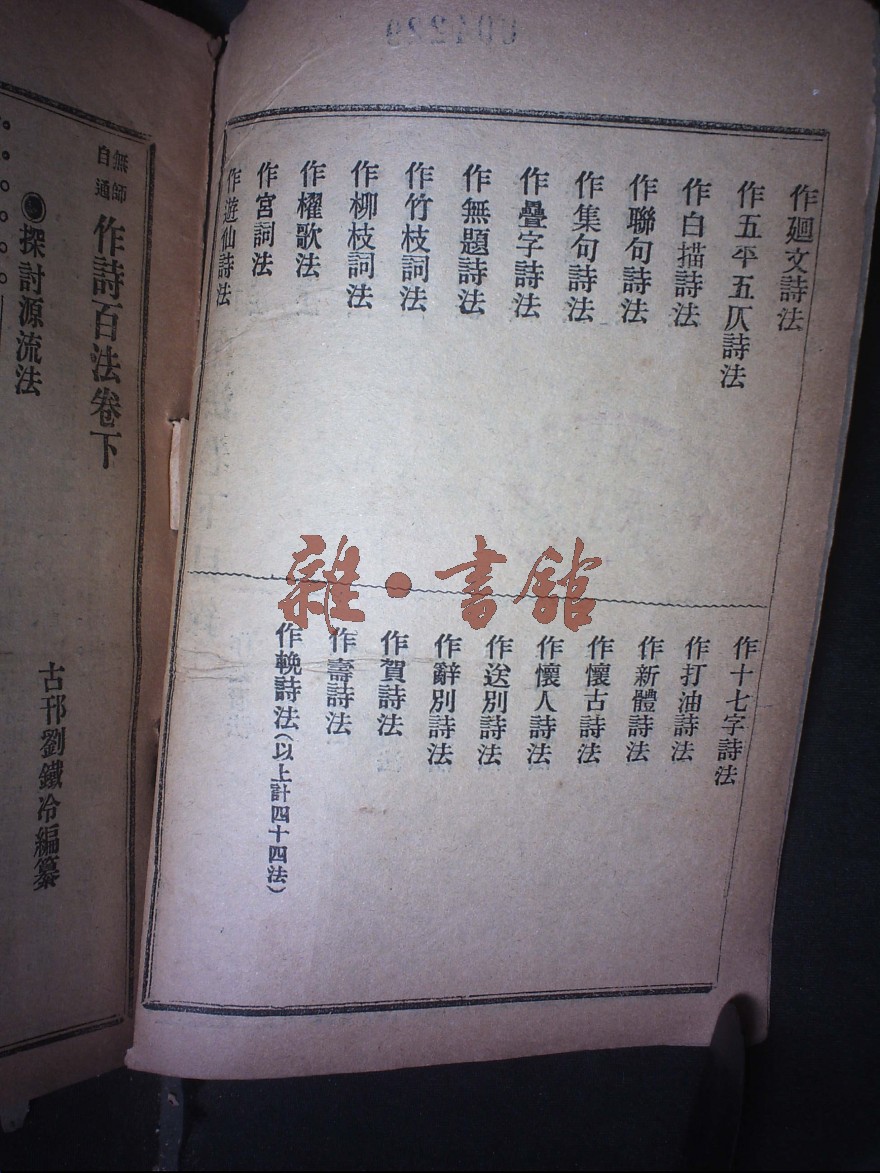 004289
作廻文詩法
作五平五仄詩法
作白描詩法
作聯句詩法
作集句詩法
作疊字詩法
作無題詩法
作竹枝詞法
作柳枝詞法
作櫂歌法
作宮詞法
作遊仙詩法
雜·書館
作十七字詩法
作打油詩法
作新體詩法
作懷古詩法
作懷人詩法
作送別詩法
作辭別詩法
作賀詩法
作壽詩法
作輓詩法(以上計四十四法)
無師自通 作詩百法卷下
古邗劉鐵冷編纂
●探討源流法